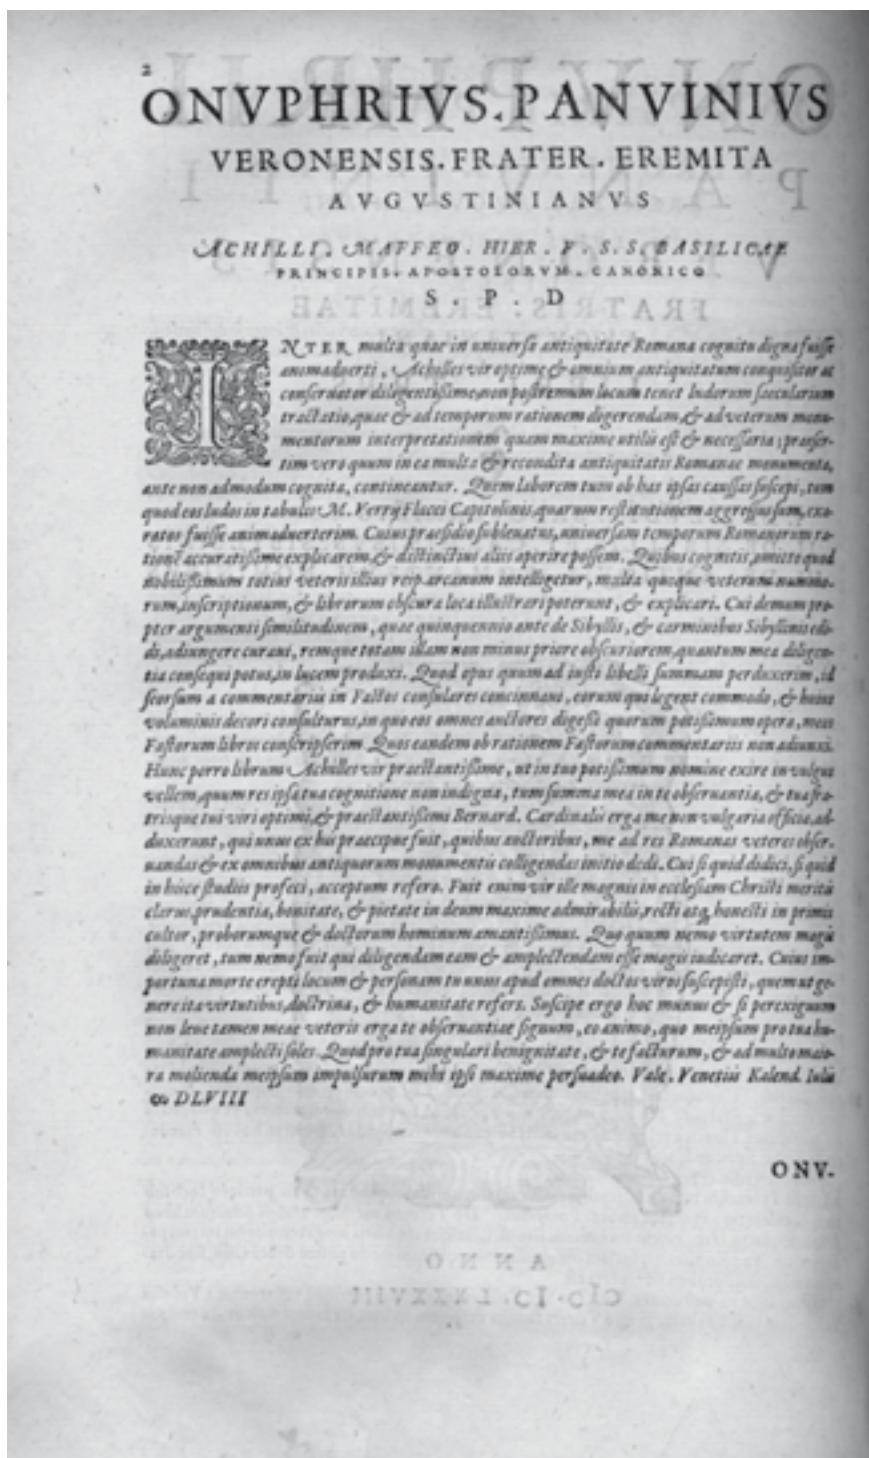 2
ONVPHRIVS. PANVINIVS
VERONENSIS. FRATER. EREMITA
AVGVSTINIANVS
ACHILLI. MAFFEO. HIER. F. S. S. BASILICAE
PRINCIPIS. APOSTOLORVM. CANONICO
S. P. D
INTER multa quae in uniuersa antiquitate Romana cognitu digna fuisse
animaduerti, Achilles vir optime & omnium antiquitatum conquisitor ac
conseruator diligentissime, non postremum locum tenet ludorum saecularium
tractatio, quae & ad temporum rationem digerendam, & ad veterum monu-
mentorum interpretationem quam maxime utilis est & necessaria; praeser-
tim vero quum in ea multa & recondita antiquitatis Romanae monumenta,
ante non admodum cognita, contineantur. Quem laborem tum ob has ipsas caussas suscepi, tum
quod eos ludos in tabulis M. Verrij Flacci Capitolinis, quarum restitutionem aggressus sum, exa-
ratos fuisse animaduerterim. Cuius praesidio subleuatus, uniuersam temporum Romanorum ra-
tionē accuratissime explicarem, & distinctius aliis aperire possem. Quibus cognitis, omitto quod
nobilissimum totius veteris illius reip. arcanum intelligetur, multa quoque veterum nummo-
rum, inscriptionum, & librorum obscura loca illustrari poterunt, & explicari. Cui demum pro-
pter argumenti similitudinem, quae quinquennio ante de Sibyllis, & carminibus Sibyllinis edi-
di, adiungere curaui, remque totam illam non minus priore obscuriorem, quantum mea diligen-
tia consequi potui, in lucem produxi. Quod opus quum ad iusti libelli summam perduxerim, id
seorsum a commentariis in Fastos consulares concinnaui, eorum qui legent commodo, & huius
voluminis decori consulturus, in quo eos omnes auctores digessi quorum potissimum opera, meos
Fastorum libros conscripserim. Quos eandem ob rationem Fastorum commentariis non adiunxi.
Hunc porro librum Achilles vir praestantissime, ut in tuo potissimum nomine exire in vulgus
vellem, quum res ipsa tua cognitione non indigna, tum summa mea in te obseruantia, & tua fra-
trisque tui viri optimi, & praestantissimi Bernard. Cardinalis erga me non vulgaria officia, ad-
duxerunt, qui unus ex his praecipue fuit, quibus auctoribus, me ad res Romanas veteres obser-
uandas & ex omnibus antiquorum monumentis colligendas initio dedi. Cui si quid didici, si quid
in hisce studiis profeci, acceptum refero. Fuit enim vir ille magnis in ecclesiam Christi meritis
clarus, prudentia, bonitate, & pietate in deum maxime admirabilis, recti atq; honesti in primis
cultor, proborumque & doctorum hominum amantissimus. Quo quum nemo virtutem magis
diligeret, tum nemo fuit qui diligendam eam & amplectendam esse magis iudicaret. Cuius im-
portuna morte erepti locum & personam tu unus apud omnes doctos viros suscepisti, quem ut ge-
nere ita virtutibus, doctrina, & humanitate refers. Suscipe ergo hoc munus & si perexiguum
non leue tamen meae veteris erga te obseruantiae signum, eo animo, quo meipsum pro tua hu-
manitate amplecti soles. Quod pro tua singulari benignitate, & te facturum, & ad multo maio-
ra molienda meipsum impulsurum mihi ipsi maxime persuadeo. Vale. Venetiis Kalend. Iulii
ↀ DLVIII
ONV.